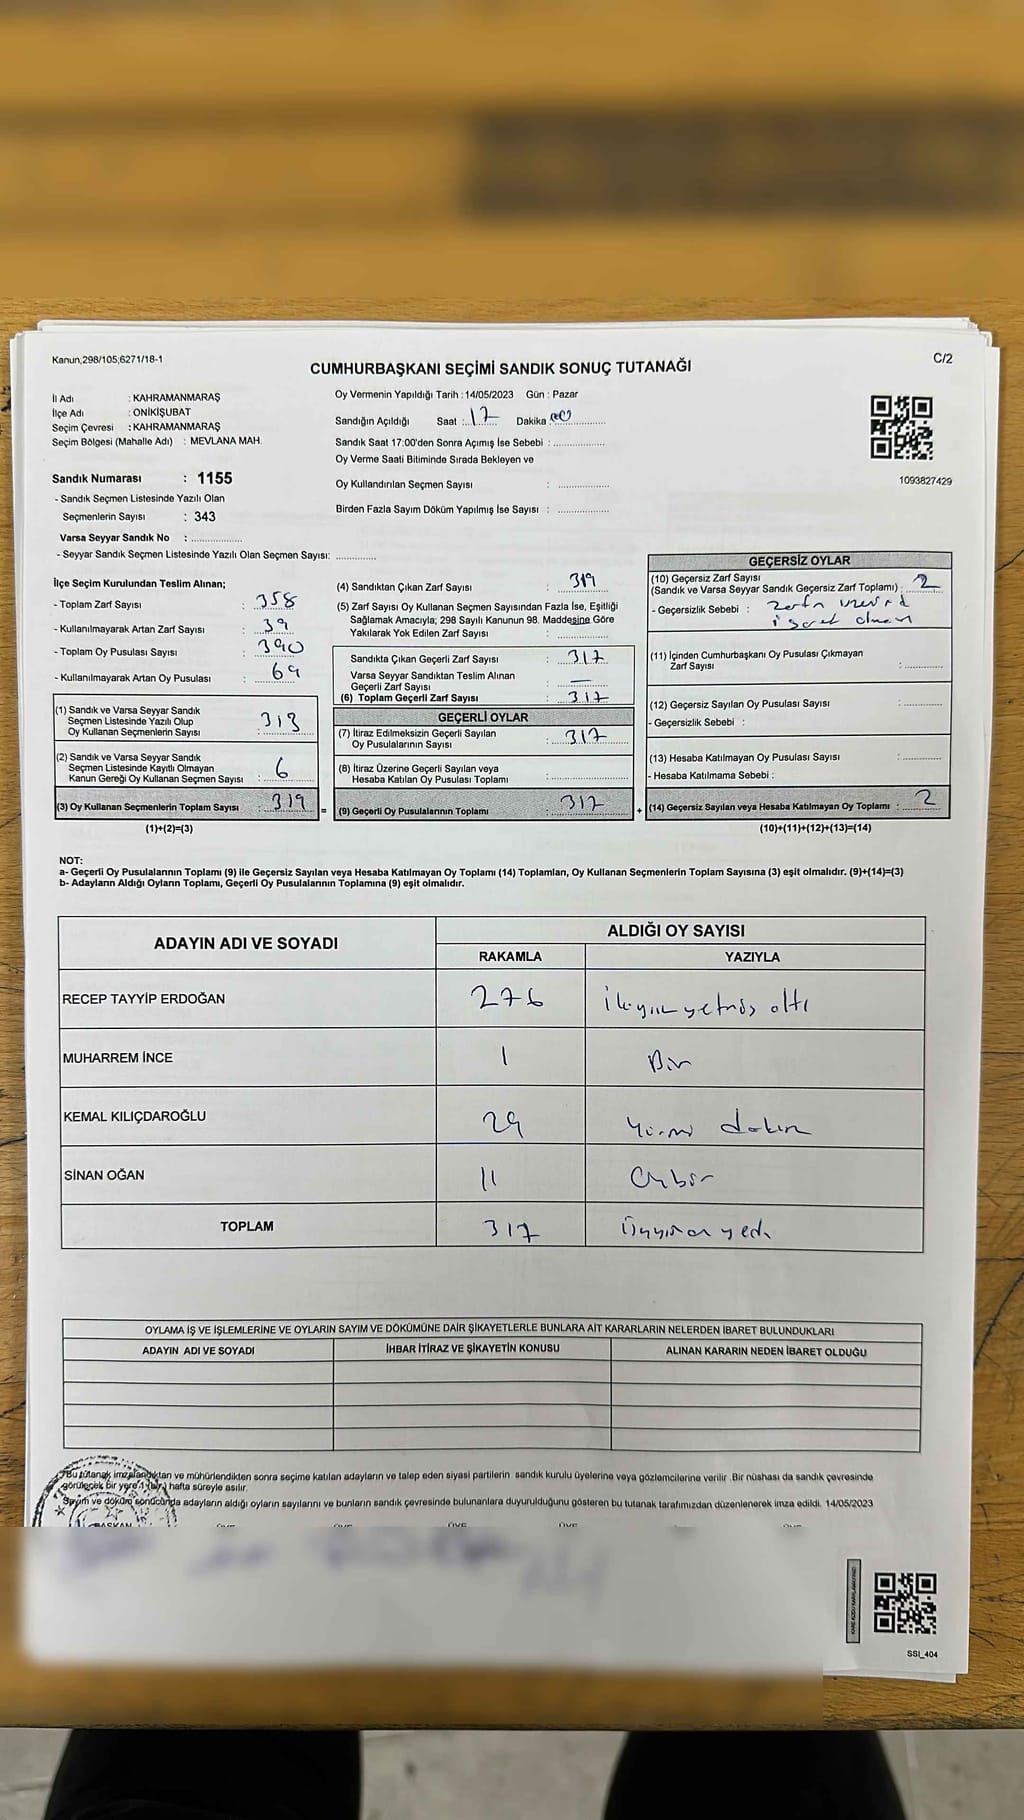 Kanun;298/105;6271/18-1
C/2
CUMHURBAŞKANI SEÇİMİ SANDIK SONUÇ TUTANAĞI
İl Adı : KAHRAMANMARAŞ
İlçe Adı : ONİKİŞUBAT
Seçim Çevresi : KAHRAMANMARAŞ
Seçim Bölgesi (Mahalle Adı) : MEVLANA MAH.
Oy Vermenin Yapıldığı Tarih : 14/05/2023 Gün : Pazar
Sandığın Açıldığı Saat : 17 Dakika :
Sandık Saat 17:00'den Sonra Açımış İse Sebebi :
Oy Verme Saati Bitiminde Sırada Bekleyen ve
Oy Kullandırılan Seçmen Sayısı :
Birden Fazla Sayım Döküm Yapılmış İse Sayısı :
1093827429
Sandık Numarası : 1155
- Sandık Seçmen Listesinde Yazılı Olan
Seçmenlerin Sayısı : 343
Varsa Seyyar Sandık No :
- Seyyar Sandık Seçmen Listesinde Yazılı Olan Seçmen Sayısı:
İlçe Seçim Kurulundan Teslim Alınan;
- Toplam Zarf Sayısı : 358
- Kullanılmayarak Artan Zarf Sayısı : 39
- Toplam Oy Pusulası Sayısı : 390
- Kullanılmayarak Artan Oy Pusulası : 69
(1) Sandık ve Varsa Seyyar Sandık
Seçmen Listesinde Yazılı Olup
Oy Kullanan Seçmenlerin Sayısı : 313
(2) Sandık ve Varsa Seyyar Sandık
Seçmen Listesinde Kayıtlı Olmayan
Kanun Gereği Oy Kullanan Seçmen Sayısı : 6
(3) Oy Kullanan Seçmenlerin Toplam Sayısı : 319
(1)+(2)=(3)
(4) Sandıktan Çıkan Zarf Sayısı : 319
(5) Zarf Sayısı Oy Kullanan Seçmen Sayısından Fazla İse, Eşitliği
Sağlamak Amacıyla; 298 Sayılı Kanunun 98. Maddesine Göre
Yakılarak Yok Edilen Zarf Sayısı :
Sandıkta Çıkan Geçerli Zarf Sayısı : 317
Varsa Seyyar Sandıktan Teslim Alınan
Geçerli Zarf Sayısı : —
(6) Toplam Geçerli Zarf Sayısı : 317
GEÇERLİ OYLAR
(7) İtiraz Edilmeksizin Geçerli Sayılan
Oy Pusulalarının Sayısı : 317
(8) İtiraz Üzerine Geçerli Sayılan veya
Hesaba Katılan Oy Pusulası Toplamı :
= (9) Geçerli Oy Pusulalarının Toplamı : 317 +
GEÇERSİZ OYLAR
(10) Geçersiz Zarf Sayısı
(Sandık ve Varsa Seyyar Sandık Geçersiz Zarf Toplamı) : 2
- Geçersizlik Sebebi :
(11) İçinden Cumhurbaşkanı Oy Pusulası Çıkmayan
Zarf Sayısı :
(12) Geçersiz Sayılan Oy Pusulası Sayısı :
- Geçersizlik Sebebi :
(13) Hesaba Katılmayan Oy Pusulası Sayısı :
- Hesaba Katılmama Sebebi :
(14) Geçersiz Sayılan veya Hesaba Katılmayan Oy Toplamı : 2
(10)+(11)+(12)+(13)=(14)
NOT:
a- Geçerli Oy Pusulalarının Toplamı (9) ile Geçersiz Sayılan veya Hesaba Katılmayan Oy Toplamı (14) Toplamları, Oy Kullanan Seçmenlerin Toplam Sayısına (3) eşit olmalıdır. (9)+(14)=(3)
b- Adayların Aldığı Oyların Toplamı, Geçerli Oy Pusulalarının Toplamına (9) eşit olmalıdır.
ADAYIN ADI VE SOYADI
ALDIĞI OY SAYISI
RAKAMLA YAZIYLA
RECEP TAYYİP ERDOĞAN 276 İkiyüzyetmiş altı
MUHARREM İNCE 1 Bir
KEMAL KILIÇDAROĞLU 29 Yirmi dokuz
SİNAN OĞAN 11 Onbir
TOPLAM 317 Üçyüzon yedi
OYLAMA İŞ VE İŞLEMLERİNE VE OYLARIN SAYIM VE DÖKÜMÜNE DAİR ŞİKAYETLERLE BUNLARA AİT KARARLARIN NELERDEN İBARET BULUNDUKLARI
ADAYIN ADI VE SOYADI İHBAR İTİRAZ VE ŞİKAYETİN KONUSU ALINAN KARARIN NEDEN İBARET OLDUĞU
Bu tutanak imzalandıktan ve mühürlendikten sonra seçime katılan adayların ve talep eden siyasi partilerin sandık kurulu üyelerine veya gözlemcilerine verilir .Bir nüshası da sandık çevresinde
görülecek bir yere 1 (bir) hafta süreyle asılır.
Sayım ve döküm sonucunda adayların aldığı oyların sayılarını ve bunların sandık çevresinde bulunanlara duyurulduğunu gösteren bu tutanak tarafımızdan düzenlenerek imza edildi. 14/05/2023
BAŞKAN
SSI_404